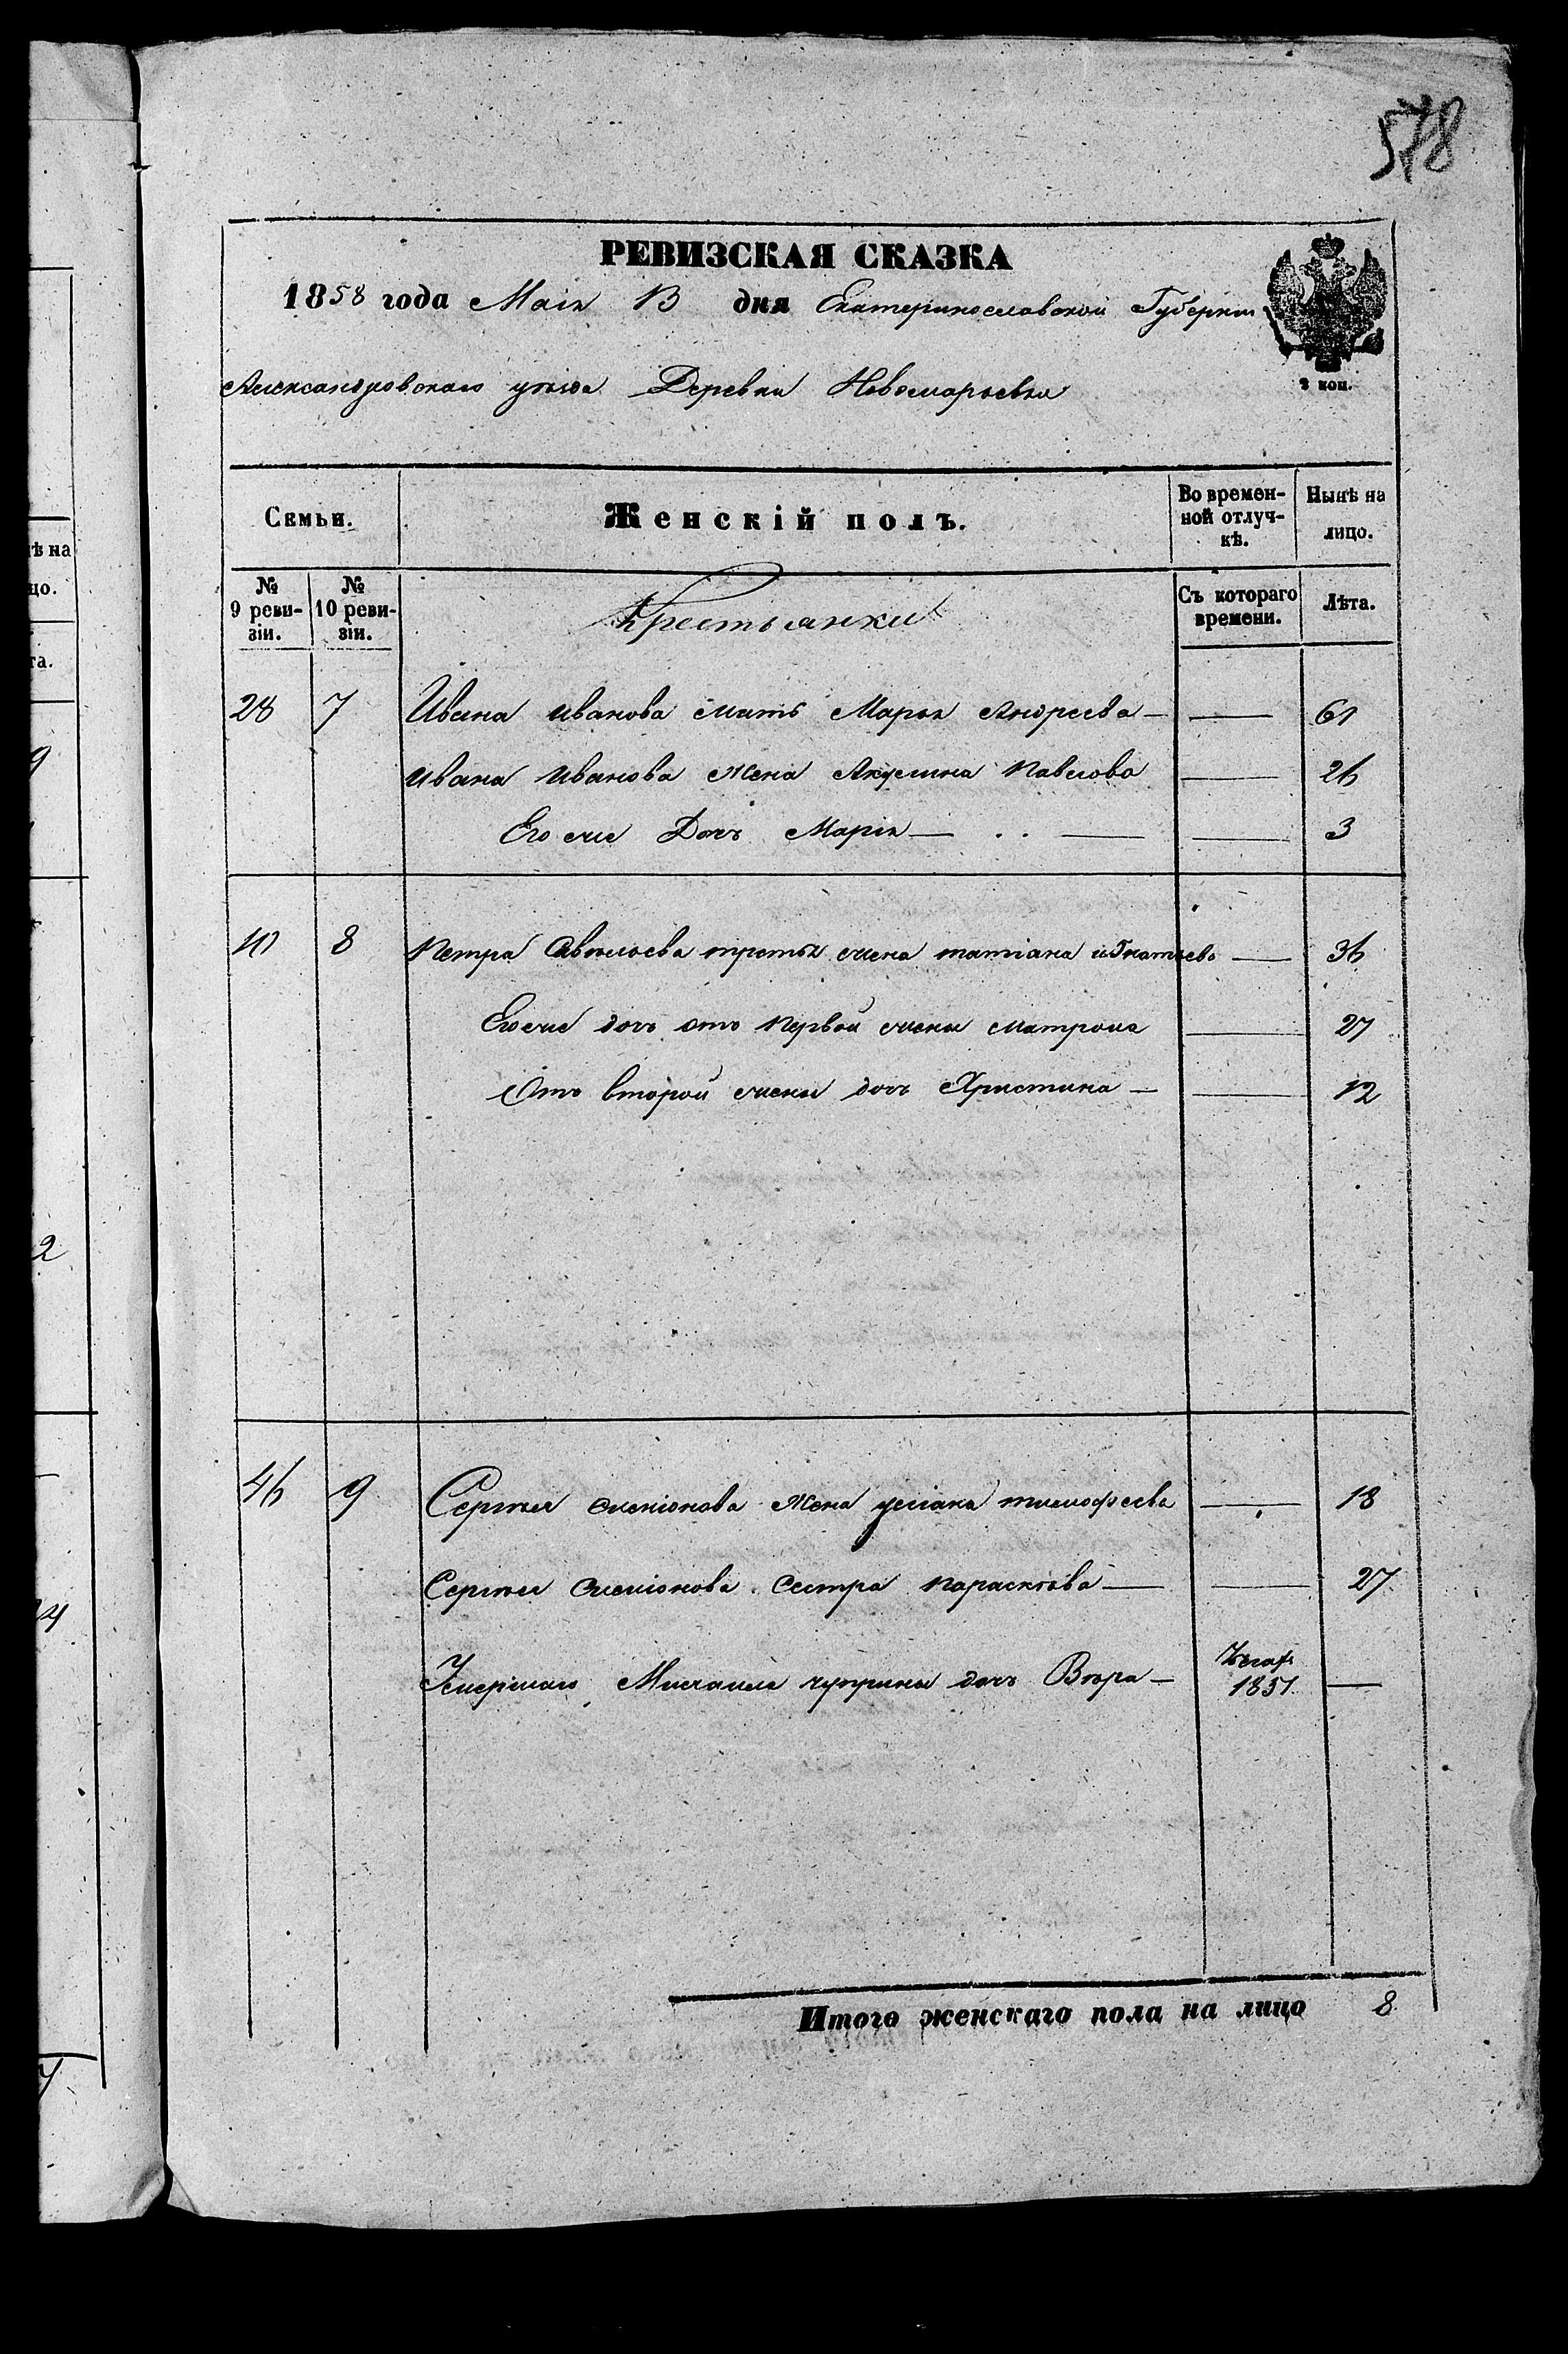 578
РЕВИЗСКАЯ СКАЗКА
1858 года Маія 13 дня Екатеринославской Губерніи
2 коп.
Александровскаго уѣзда Деревни Новомарьевки
Семьи. Женскій полъ. Во времен-ной отлуч-кѣ. Нынѣ на лицо.
№ 9 реви-зіи. № 10 реви-зіи. Крестьянки Съ котораго времени. Лѣта.
28 7 Ивана Иванова мать Марья Андреева — — 61
Ивана Иванова жена Акулина Павлова — 26
Его же Дочь Марія — — — 3
8 Петра Савельева третья жена татіана игнатьева — 36
Его же дочь отъ Первой жены матрона — 27
Отъ второй жены дочь Христина — — 12
46 9 Сергѣя семіонова жена уліана тимофеева — 18
Сергѣя Семіонова Сестра параскѣва — — 27
Умершаго чуприны дочь Вѣра — 1851 —
Итого женскаго пола на лицо 8
ѣ на
цо.
та.
9
2
4